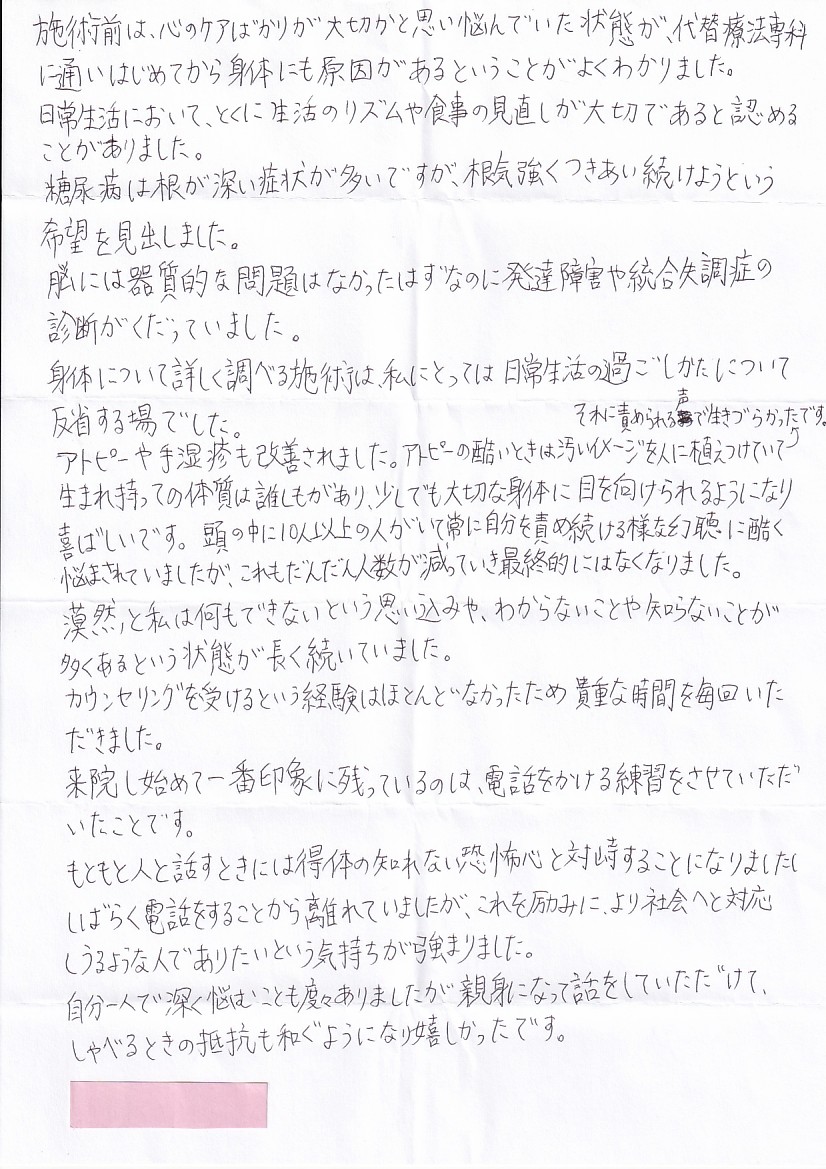 施術前は、心のケアばかりが大切かと思い悩んでいた状態が、代替療法専科
に通いはじめてから身体にも原因があるということがよくわかりました。
日常生活において、とくに生活のリズムや食事の見直しが大切であると認める
ことがありました。
糖尿病は根が深い症状が多いですが、根気強くつきあい続けようという
希望を見出しました。
脳には器質的な問題はなかったはずなのに発達障害や統合失調症の
診断がくだっていました。
身体について詳しく調べる施術は、私にとっては日常生活の過ごしかたについて
反省する場でした。
それに責められる声で生きづらかったです。
アトピーや手湿疹も改善されました。アトピーの酷いときは汚いイメージを人に植えつけていて
生まれ持っての体質は誰しもがあり、少しでも大切な身体に目を向けられるようになり
喜ばしいです。頭の中に10人以上の人がいて常に自分を責め続ける様な幻聴に酷く
悩まされていましたが、これもだんだん人数が減っていき最終的にはなくなりました。
漠然と私は何もできないという思い込みや、わからないことや知らないことが
多くあるという状態が長く続いていました。
カウンセリングを受けるという経験はほとんどなかったため貴重な時間を毎回いた
だきました。
来院し始めて一番印象に残っているのは、電話をかける練習をさせていただ
いたことです。
もともと人と話すときには得体の知れない恐怖心と対峙することになりました
しばらく電話をすることから離れていましたが、これを励みに、より社会へと対応
しうるような人でありたいという気持ちが強まりました。
自分一人で深く悩むことも度々ありましたが親身になって話をしていただけて、
しゃべるときの抵抗も和ぐようになり嬉しかったです。